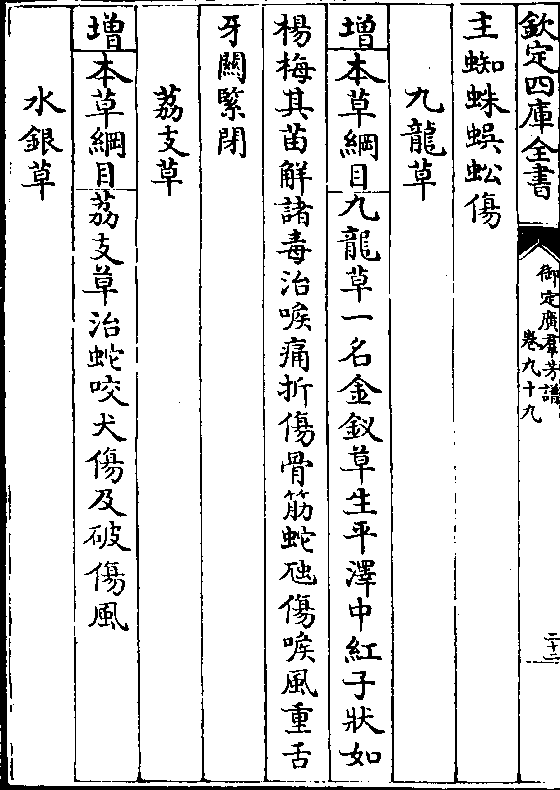 欽定四庫全書
御定廣羣芳譜
卷九十九
二十二
主蜘蛛蜈蚣傷
九龍草
增本草綱目九龍草一名金釵草生平澤中紅子狀如
楊梅其苗解諸毒治喉痛折傷骨筋蛇虺傷喉風重舌
牙關緊閉
荔支草
增本草綱目荔支草治蛇咬犬傷及破傷風
水銀草